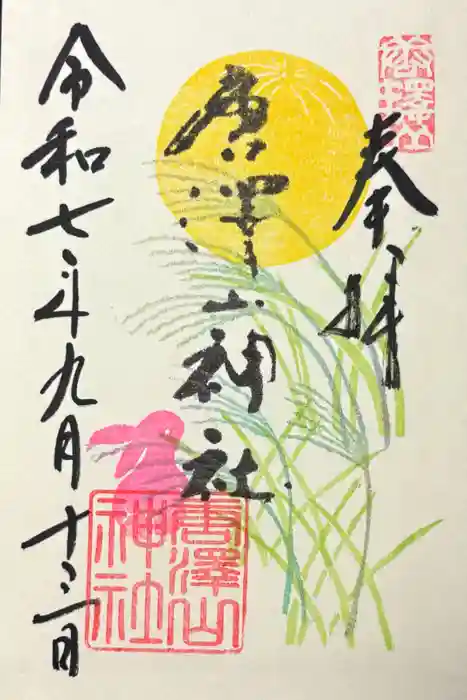 唐澤山
奉拝
唐澤山神社
令和七年九月十三日
唐澤山
神社